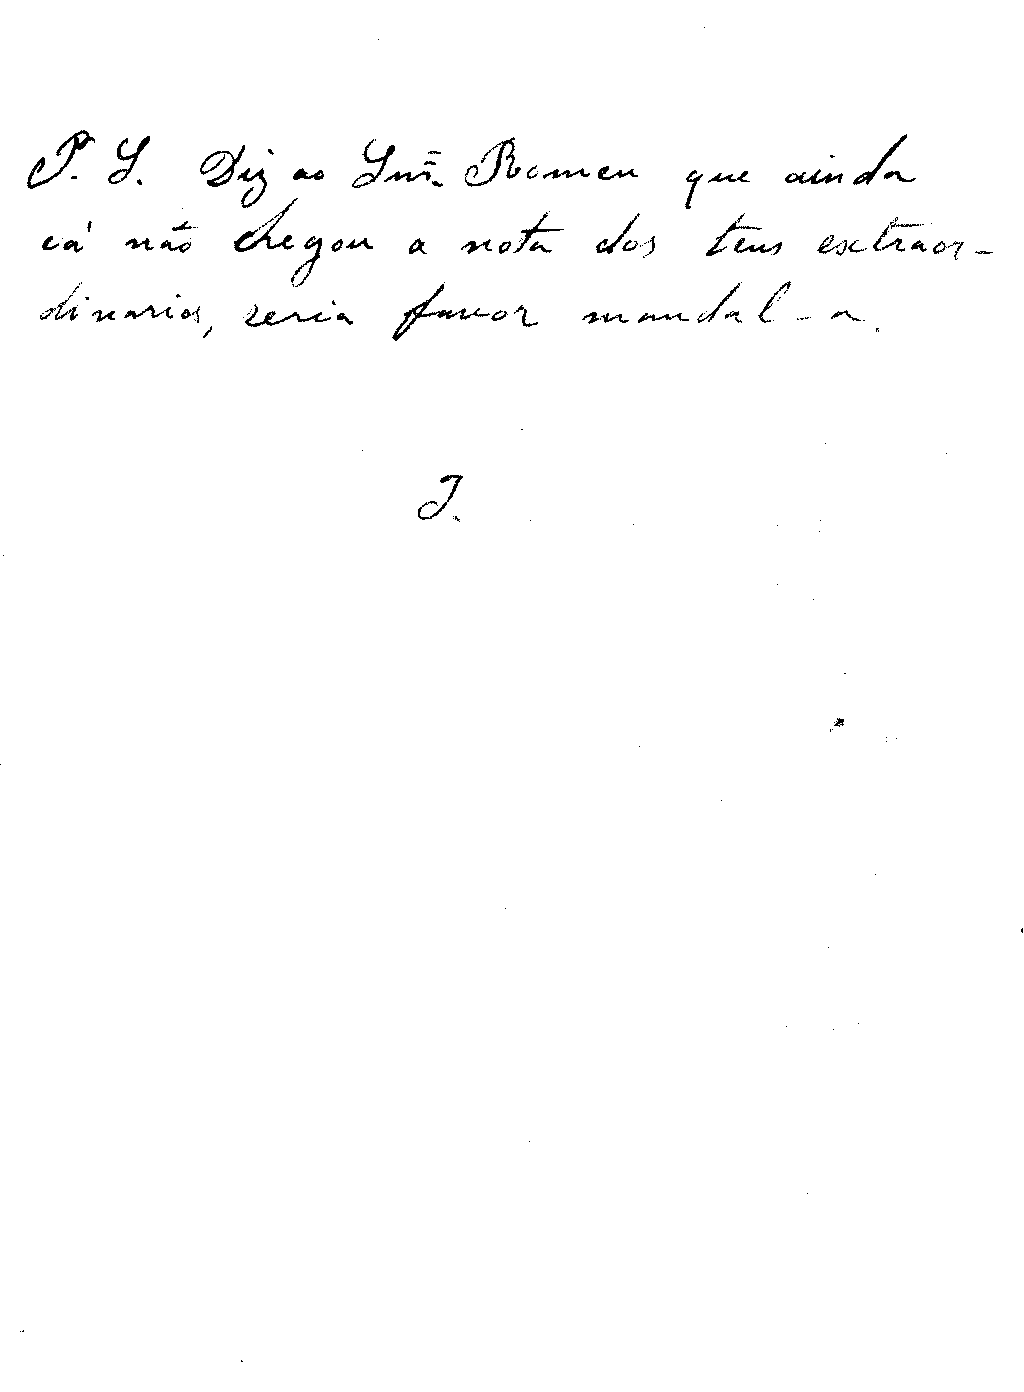 P. S. Diz ao Snr. Romeu que ainda
cá não chegou a nota dos teus extraor-
dinarios, seria favor mandal-a.
J.